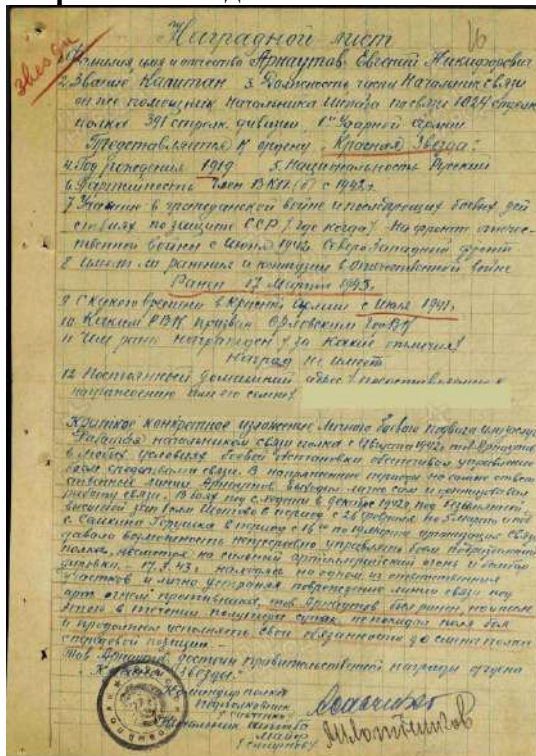 звезды
16
Наградной лист
1. Фамилия, имя и отчество Арнаутов Евгений Никифорович
2. Звание Капитан 3. Должность, часть Начальник связи
он же помощник начальника штаба по связи 1024 стрелк.
полка 391 стрелк. дивизии, 1ой Ударной армии
Представляется к ордену „Красная Звезда“.
4. Год рождения 1919 5. Национальность Русский
6. Партийность Член ВКП(б) с 1942 г.
7. Участие в гражданской войне и последующих боевых дей
ствиях по защите СССР / где когда / На фронте отече-
ственной войны с июня 1942 Северо Западный фронт
8. Имеет ли ранения и контузии в отечественной войне
Ранен 17 Марта 1943 г.
9. С какого времени в Красной Армии с Июля 1941 г.
10. Каким РВК призван Орловским ГорВК
11. Чем ранее награжден / за какие отличия /
Наград не имеет
12. Постоянный домашний адрес представляемого к
награждению или его семьи
Краткое конкретное изложение личного боевого подвига или заслуг
Работая начальником связи полка с Августа 1942 г. тов. Арнаутов
в любых условиях боевой обстановки обеспечивал управление
боем средствами связи. В напряженные периоды на самые ответ
ственные линии Арнаутов выходил лично сам и
работу связи. В боях под с. в декабре 1942 г. под безымянной
высотой в период с 26 февраля по 5 марта и под
с. Горушка в период с 16 по 19 марта организация связи
давала возможность непрерывно управлять боем подразделений
полка, несмотря на сильный артиллерийский огонь и бомбар
дировки. - 17.3.43 г. находясь на одном из ответственных
участков и лично устраняя повреждение линии связи под
арт. огнем противника, тов. Арнаутов был ранен, но после
этого в течении полутора суток не покидал поля боя
и продолжал исполнять свои обязанности до смены полка
с передовой позиции. -
Тов. Арнаутов достоин правительственной награды ордена
„Красной Звезды“.
Командир полка
подполковник
Начальник штаба
майор